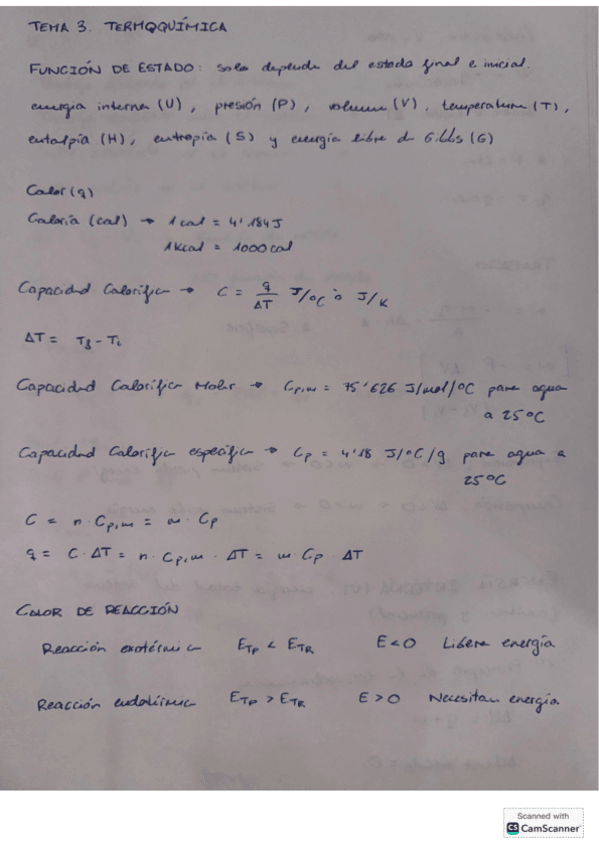 TEMA 3. TERMOQUÍMICA
FUNCIÓN DE ESTADO: solo depende del estado final e inicial.
energía interna (U), presión (P), volumen (V), temperatura (T),
entalpía (H), entropía (S) y energía libre de Gibbs (G)
Calor (q)
Caloría (cal) → 1 cal = 4'184 J
1 Kcal = 1000 cal
Capacidad Calorífica → C = q/ΔT J/ºC ó J/K
ΔT = Tf - Ti
Capacidad Calorífica Molar → Cp,m = 75'626 J/mol/ºC para agua
a 25ºC
Capacidad Calorífica específica → Cp = 4'18 J/ºC/g para agua a
25ºC
C = n · Cp,m = m · Cp
q = C · ΔT = n · Cp,m · ΔT = m · Cp · ΔT
CALOR DE REACCIÓN
Reacción exotérmica ETP < ETR E < 0 Libera energía
Reacción endotérmica ETP > ETR E > 0 Necesitan energía
Scanned with
CS CamScanner